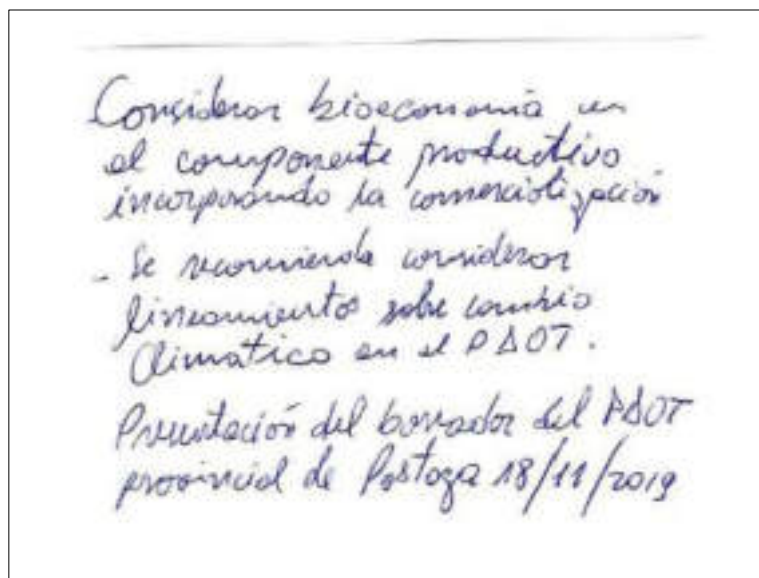 Considerar bioeconomía en
el componente productivo
incorporando la comercialización
- Se recomienda considerar
lineamientos sobre cambio
Climatico en el PDOT.
Presentación del borrador del PDOT
provincial de Pastaza 18/11/2019